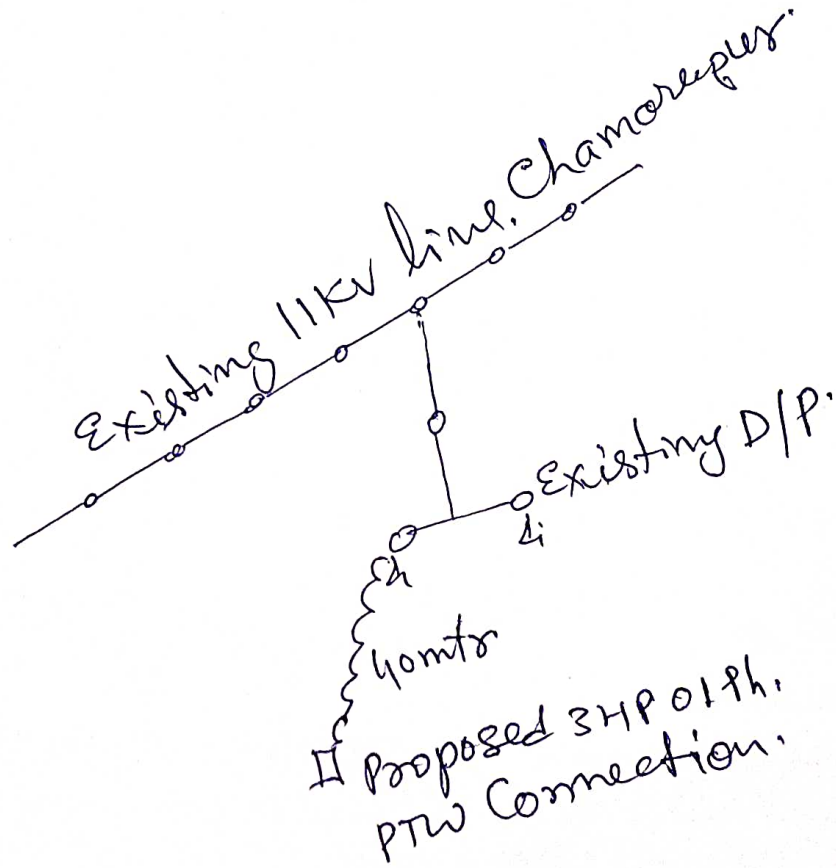 Existing 11KV line, Chamorepur.
Existing D/P.
40mtr
Proposed 3HP 01 Ph.
PTW Connection.